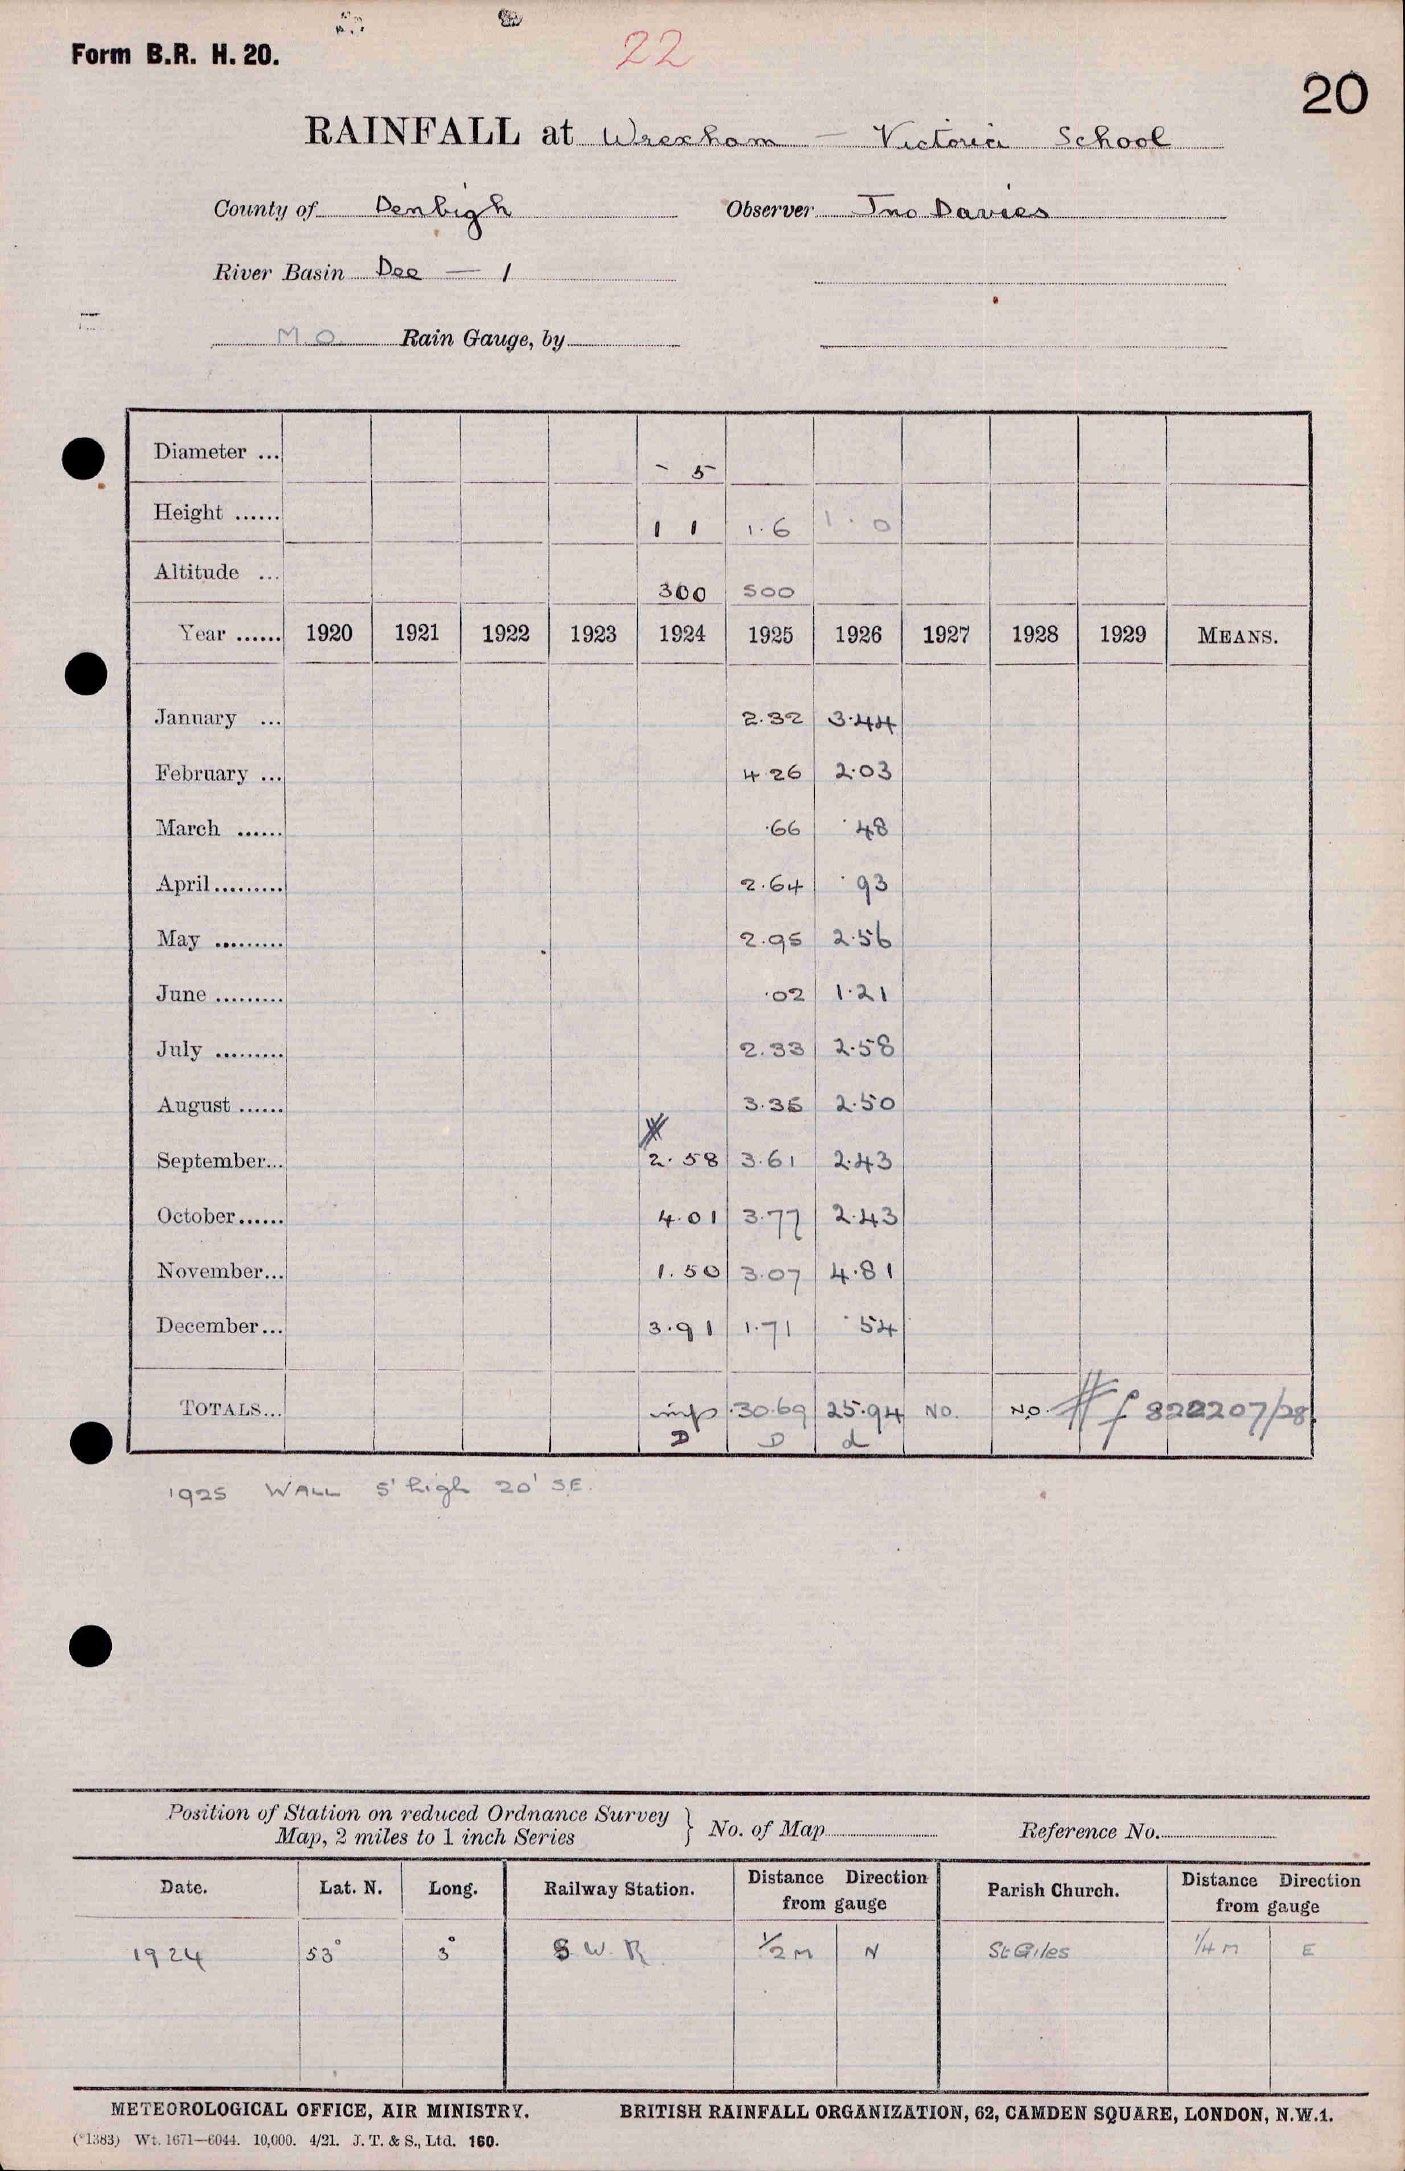 Form B.R. H. 20.
22
20
RAINFALL at Wrexham — Victoria School
County of Denbigh Observer Jno Davies
River Basin Dee — 1
M.O. Rain Gauge, by
Diameter ... 5
Height ...... 1 1 1.6 1.0
Altitude ... 300 500
Year ...... 1920 1921 1922 1923 1924 1925 1926 1927 1928 1929 MEANS.
January ... 2.32 3.44
February ... 4.26 2.03
March ...... .66 .48
April......... 2.64 .93
May ......... 2.95 2.56
June ......... .02 1.21
July ......... 2.33 2.58
August ...... 3.35 2.50
September... 2.58 3.61 2.43
October...... 4.01 3.77 2.43
November... 1.50 3.07 4.81
December... 3.91 1.71 .54
TOTALS... imp 30.69 25.94 NO. NO. f 822207/28
D D d
1925 WALL 5' high 20' S.E.
Position of Station on reduced Ordnance Survey
Map, 2 miles to 1 inch Series } No. of Map Reference No.
Date. Lat. N. Long. Railway Station. Distance Direction from gauge Parish Church. Distance Direction from gauge
1924 53° 3° G W. R. 1/2 M N St Giles 1/4 M E
METEOROLOGICAL OFFICE, AIR MINISTRY. BRITISH RAINFALL ORGANIZATION, 62, CAMDEN SQUARE, LONDON, N.W.1.
(*1383) Wt. 1671—6044. 10,000. 4/21. J. T. & S., Ltd. 160.